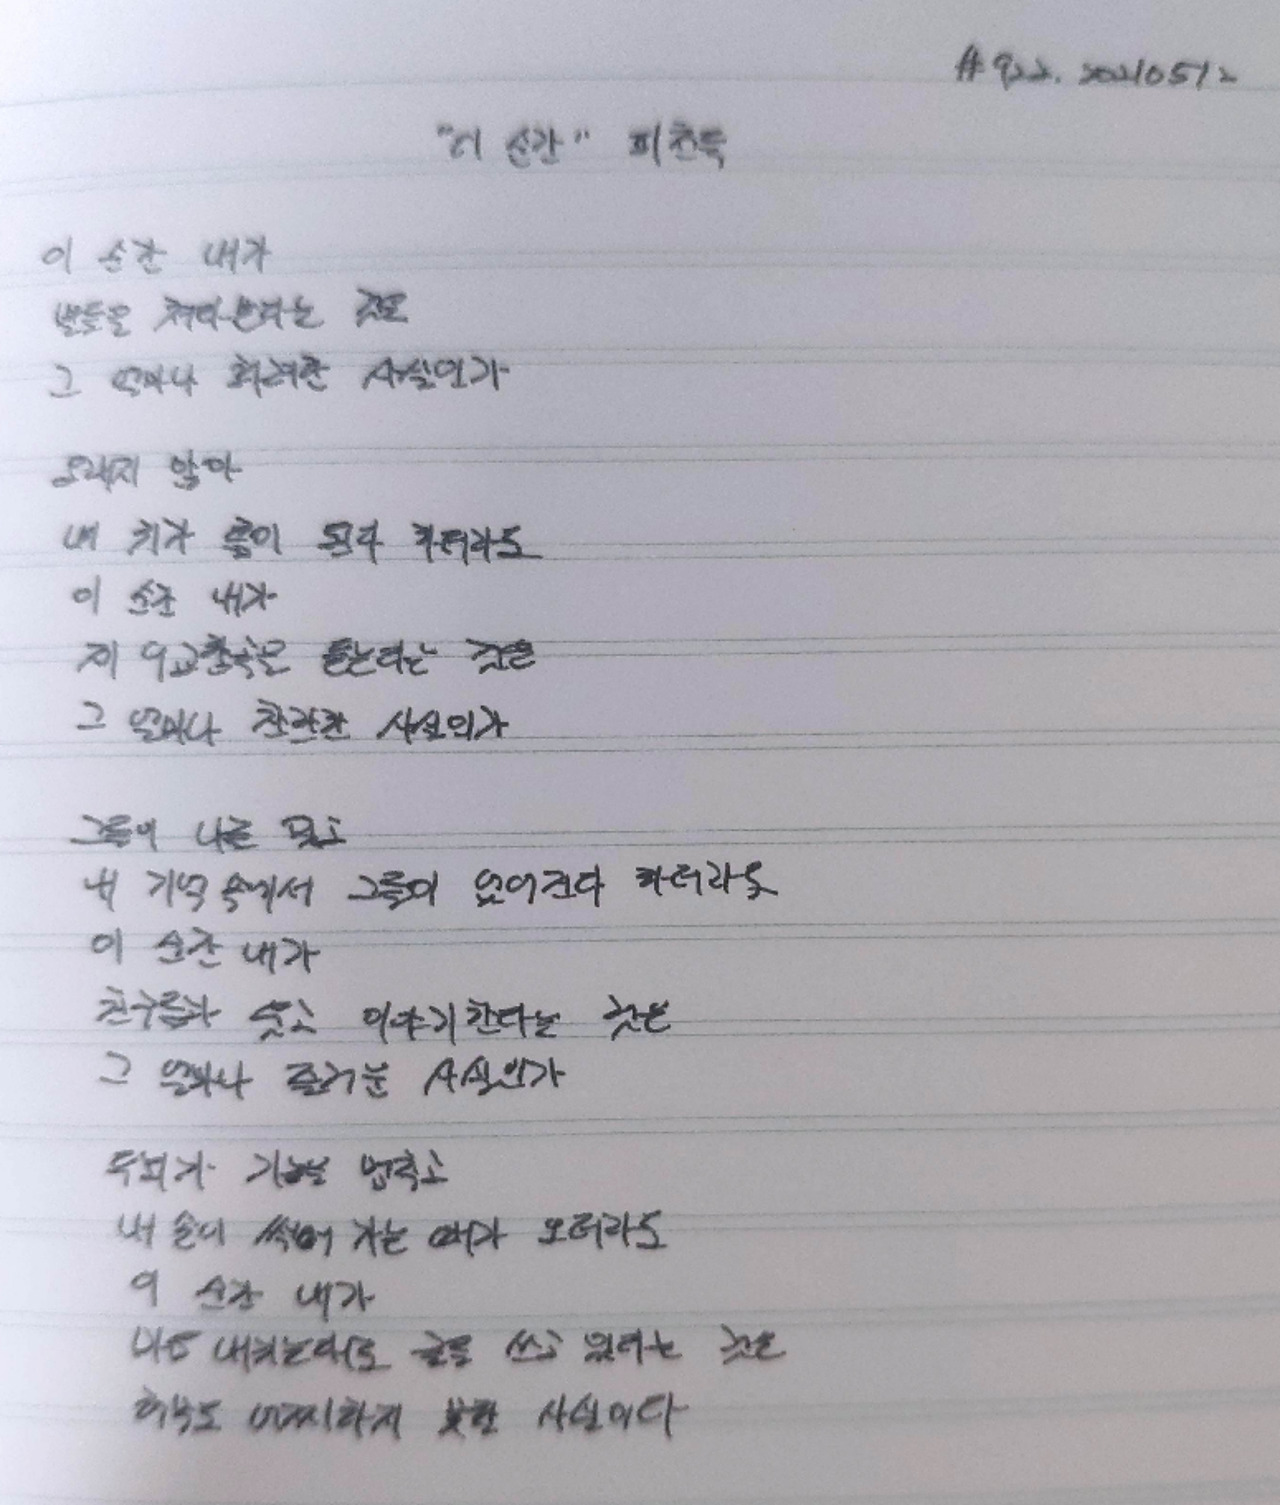 #922. 20210512
"이 순간" 피천득
이 순간 내가
별들을 쳐다본다는 것은
그 얼마나 화려한 사실인가
오래지 않아
내 귀가 흙이 된다 하더라도
이 순간 내가
제 9교향곡을 듣는다는 것은
그 얼마나 찬란한 사실인가
그들이 나를 잊고
내 기억 속에서 그들이 없어진다 하더라도
이 순간 내가
친구들과 웃고 이야기한다는 것은
그 얼마나 즐거운 사실인가
두뇌가 기능을 멈추고
내 손이 썩어 가는 때가 오더라도
이 순간 내가
마음 내키는대로 글을 쓰고 있다는 것은
허무도 어찌하지 못할 사실이다